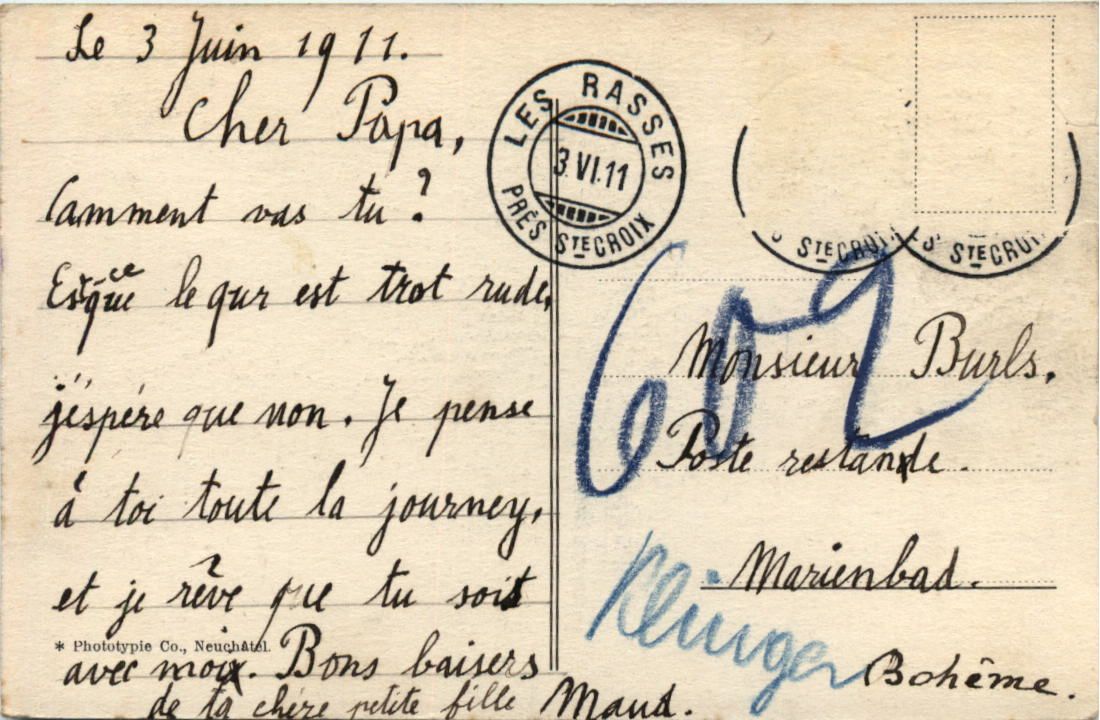 Le 3 Juin 1911.
Cher Papa,
Camment vas tu?
Estce que le qur est trot rude,
j'éspére que non. Je pense
à toi toute la journey,
et je rêve que tu soit
* Phototypie Co., Neuchâtel.
avec moi. Bons baisers
de ta chére petite fille Maud.
LES RASSES
3.VI.11
PRÈS STE CROIX
S STE CROIX
ES STE CROI
609
Monsieur Burls.
Poste restande.
Marienbad.
Bohême.